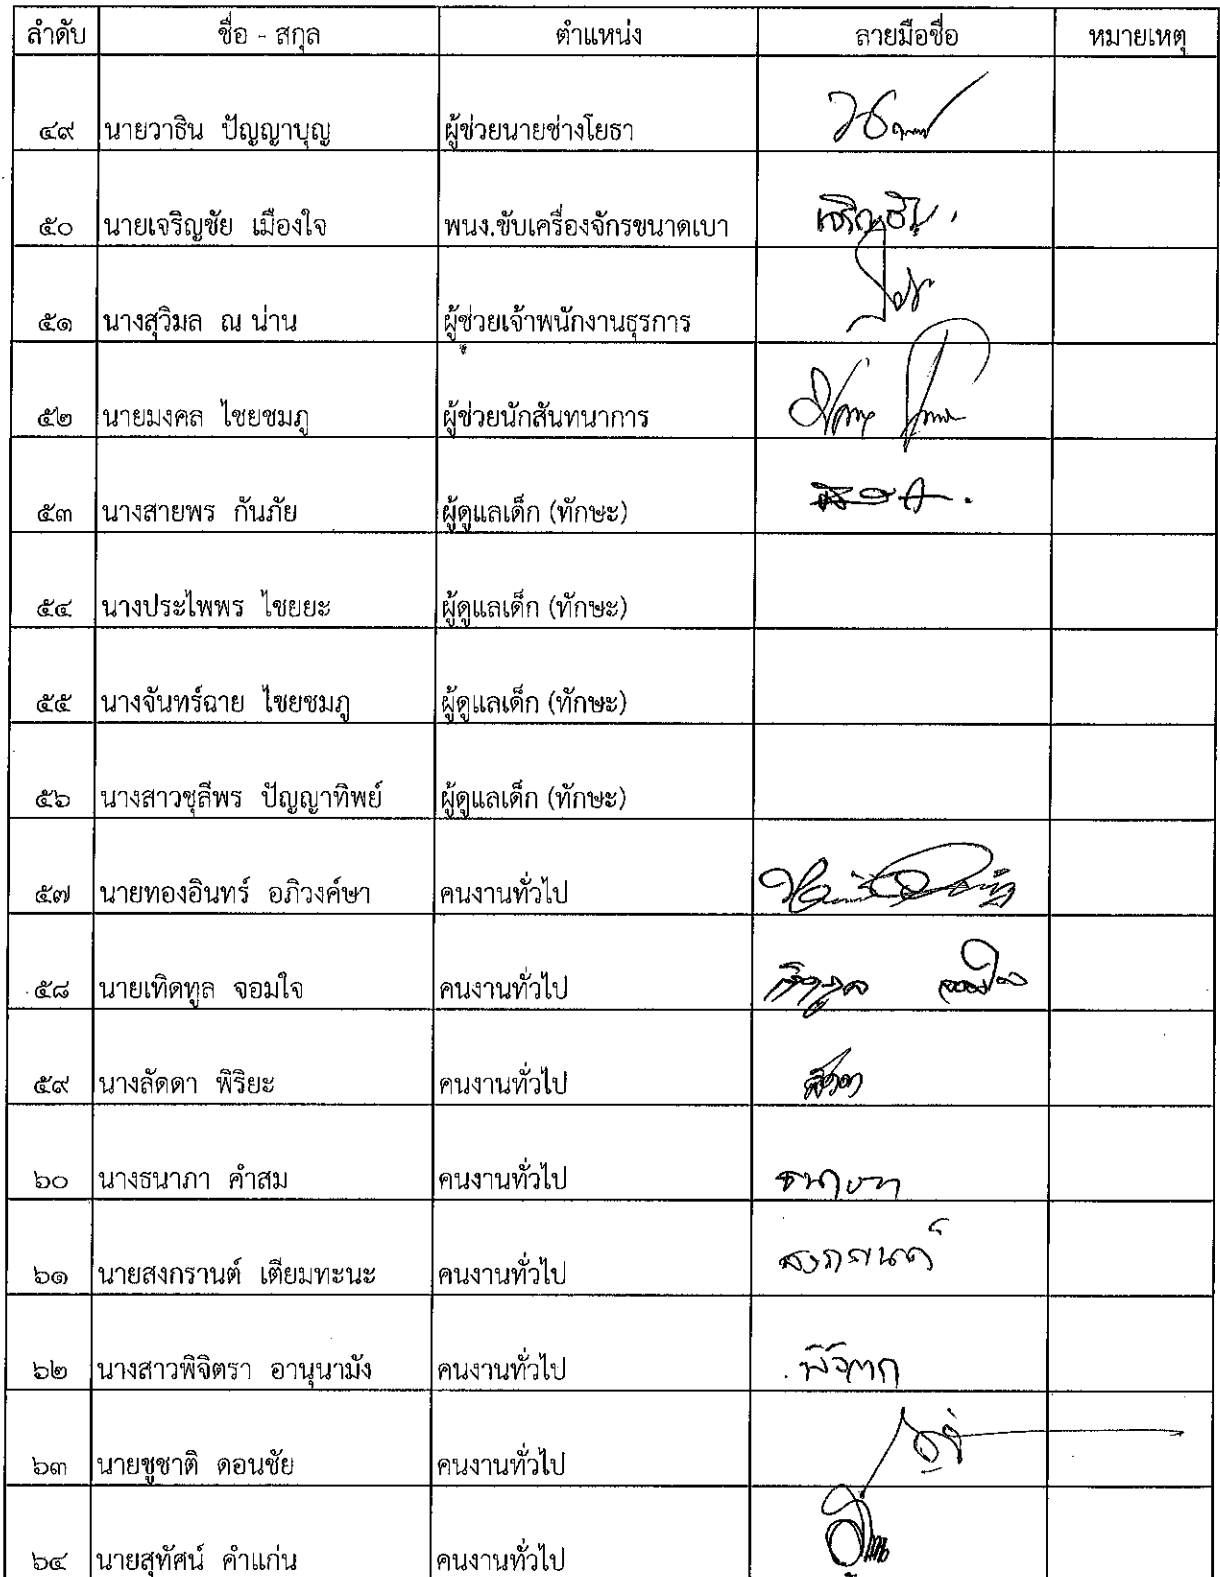 ลำดับ ชื่อ - สกุล ตำแหน่ง ลายมือชื่อ หมายเหตุ
๔๙ นายวาธิน ปัญญาบุญ ผู้ช่วยนายช่างโยธา
๕๐ นายเจริญชัย เมืองใจ พนง.ขับเครื่องจักรขนาดเบา เจริญชัย
๕๑ นางสุวิมล ณ น่าน ผู้ช่วยเจ้าพนักงานธุรการ
๕๒ นายมงคล ไชยชมภู ผู้ช่วยนักสันทนาการ
๕๓ นางสายพร กันภัย ผู้ดูแลเด็ก (ทักษะ)
๕๔ นางประไพพร ไชยยะ ผู้ดูแลเด็ก (ทักษะ)
๕๕ นางจันทร์ฉาย ไชยชมภู ผู้ดูแลเด็ก (ทักษะ)
๕๖ นางสาวชุลีพร ปัญญาทิพย์ ผู้ดูแลเด็ก (ทักษะ)
๕๗ นายทองอินทร์ อภิวงค์ษา คนงานทั่วไป
๕๘ นายเทิดทูล จอมใจ คนงานทั่วไป เทิดทูล จอมใจ
๕๙ นางลัดดา พิริยะ คนงานทั่วไป ลัดดา
๖๐ นางธนาภา คำสม คนงานทั่วไป ธนาภา
๖๑ นายสงกรานต์ เตียมทะนะ คนงานทั่วไป สงกรานต์
๖๒ นางสาวพิจิตรา อานุนามัง คนงานทั่วไป พิจิตรา
๖๓ นายชูชาติ ดอนชัย คนงานทั่วไป
๖๔ นายสุทัศน์ คำแก่น คนงานทั่วไป